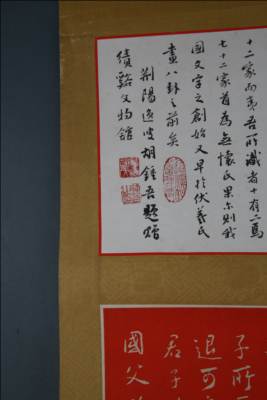 十二家而夷吾所識者十有二焉
七十二家首為無懷氏果尔則我
國文字之創始又早於伏羲氏
畫八卦之前矣
荆陽逸叟胡鍾吾題贈
績谿文物館
子所
退可
君子
國父